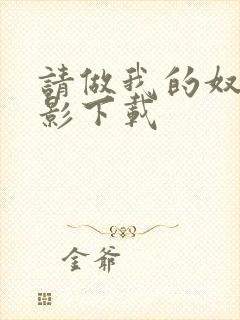 請做我的奴
影下載
金爺